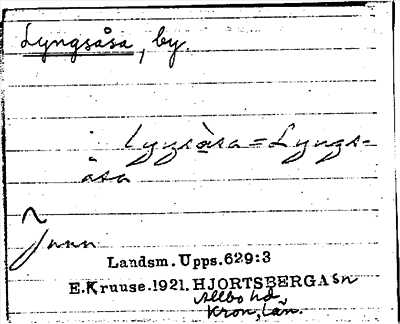 Lyngsåsa, by.
Lyngsàsa = Lyngs-
åsa
Landsm. Upps. 629:3
E. Kruuse. 1921. HJORTSBERGA sn
Allbo hd
Kron. län.